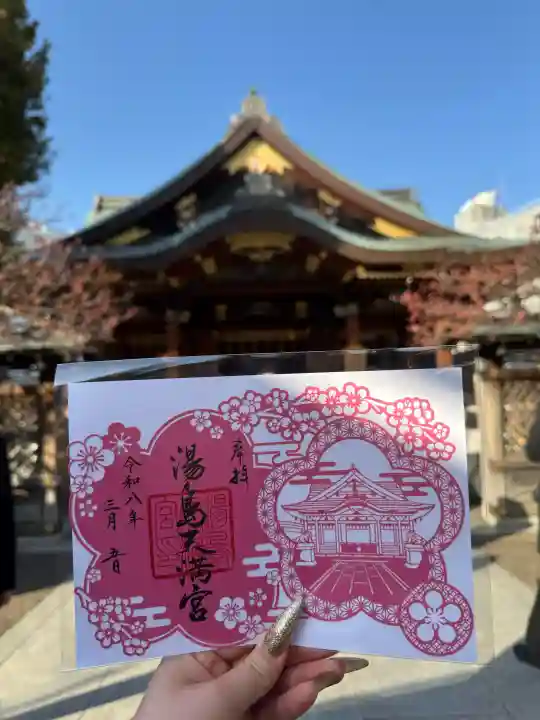 奉拝
湯島天満宮
令和八年
三月 五日